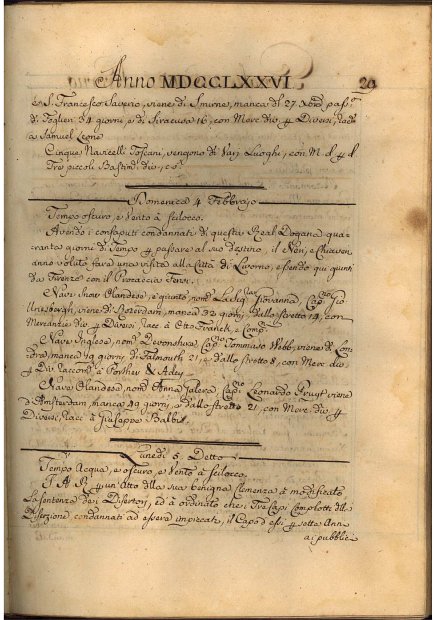 Anno MDCCLXXVI. 29
e S. Francesco Saverio, viene di Smirne, manca di 27 Xbre, pass:
di Foglieri 34 giorni, e di Siracusa 16, con Merc div p Diversi, racc
a Samuel Leone
Cinque Navicelli Toscani, vengono di Varj Luoghi, con M d p d
Tre piccoli Bastim: div, e 
Domenica 4 Febbrajo
Tempo oscuro, e Vento à Scilocco.
Avendo i consaputi condannati di questa Real Dogana qua
ranta giorni di Tempo p passare al suo destino, il Neri, e Chiaven
anno voluto fare una visita alla Città di Livorno, essendo qui giunti
da Firenze con il Procaccia Ferri.
Nave Snow Olandese, è giunto, nom: La Sig:ra Giovanna, Cap:no Gio
viene di Amsterdam, manca 32 giorni, dallo stretto 14, con
Mercanzie div p Diversi Racc à Otto Franck, e Comp:
Nave Inglese, nom: Devonshire, Cap:no Tommaso Webb, viene di Lon
dra, manca 49 giorni, di Falmouth 21, e dallo stretto 8, con Merc div
p Div Raccom: à Porther & Adey
Nave Olandese, nom: Anna Galera, Cap:no Leonardo Pruyt, viene
d'Amsterdam, manca 49 giorni, e dallo stretto 21, con Merc: div p
Diversi, Racc à Giuseppe Balbi
Lunedi 5 Detto
Tempo Acqua, e oscuro, e Vento à scilocco.
S A R p un Atto della sua benigna Clemenza à modificato
La sentenza dei Disertori, ed à ordinato che i Tre Capi Complotti della
Diserzione condannati ad essere impiccati, il Capo d essi p sette Ann
ai pubblic